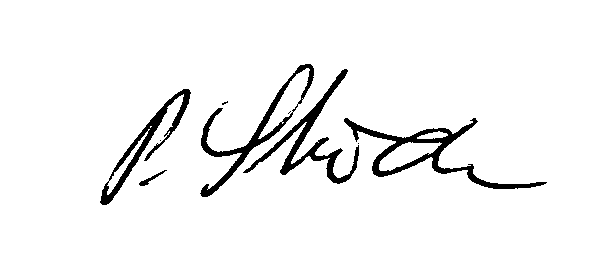 P. Skoda